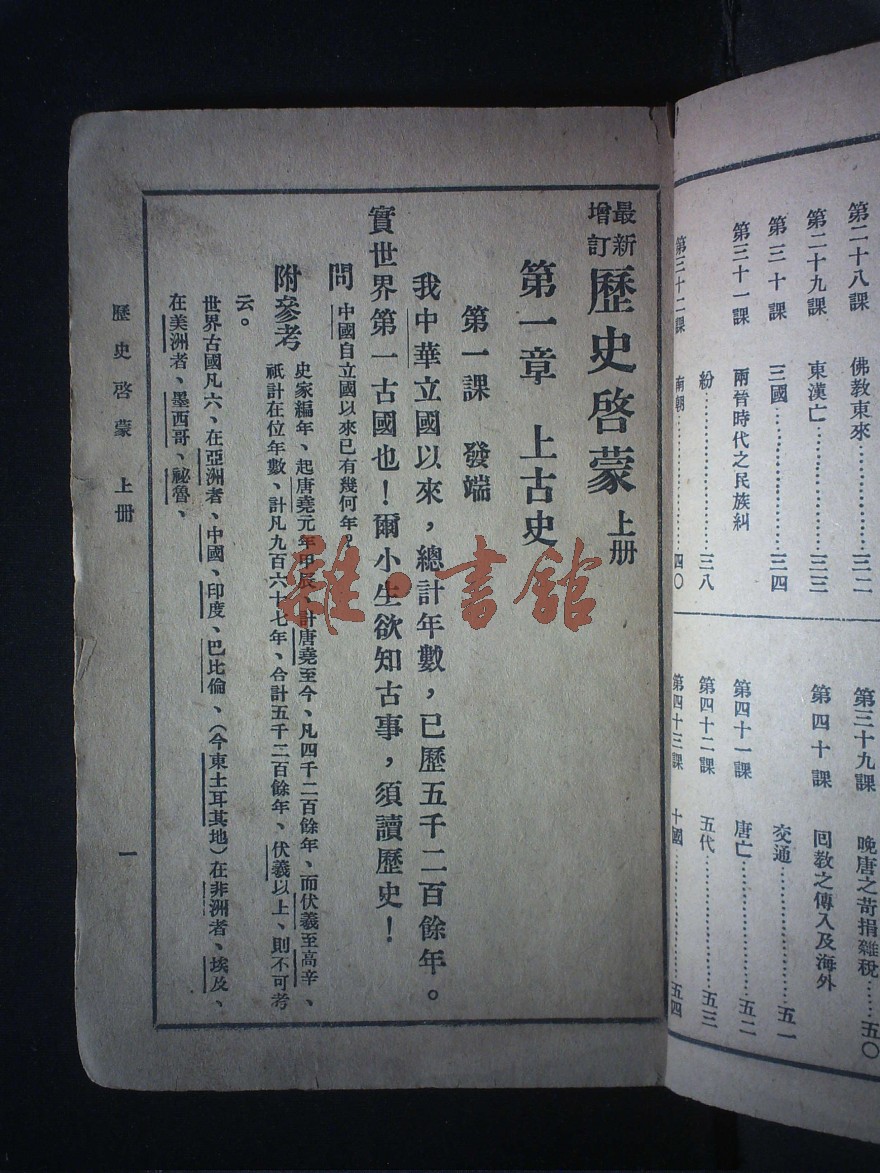 第二十八課　佛教東來………三二
第二十九課　東漢亡………三三
第三十課　三國………三四
第三十一課　兩晉時代之民族糾
紛………三八
第三十二課　南朝………四〇
第三十九課　晚唐之苛捐雜稅……五〇
第四十課　回教之傳入及海外
交通………五一
第四十一課　唐亡………五二
第四十二課　五代………五三
第四十三課　十國………五四
最新增訂歷史啓蒙　上册
第一章　上古史
第一課　發端
我中華立國以來，總計年數，已歷五千二百餘年。
實世界第一古國也！爾小生欲知古事，須讀歷史！
問　中國自立國以來已有幾何年？
附參考　史家編年、起唐堯元年甲辰、計唐堯至今、凡四千二百餘年、而伏羲至高辛、
祇計在位年數、計凡九百六十七年、合計五千二百餘年、伏羲以上、則不可考
云。
世界古國凡六、在亞洲者、中國、印度、巴比倫、（今東土耳其地）在非洲者、埃及、
在美洲者、墨西哥、祕魯、
歷史啓蒙　上册
一
雜·書館